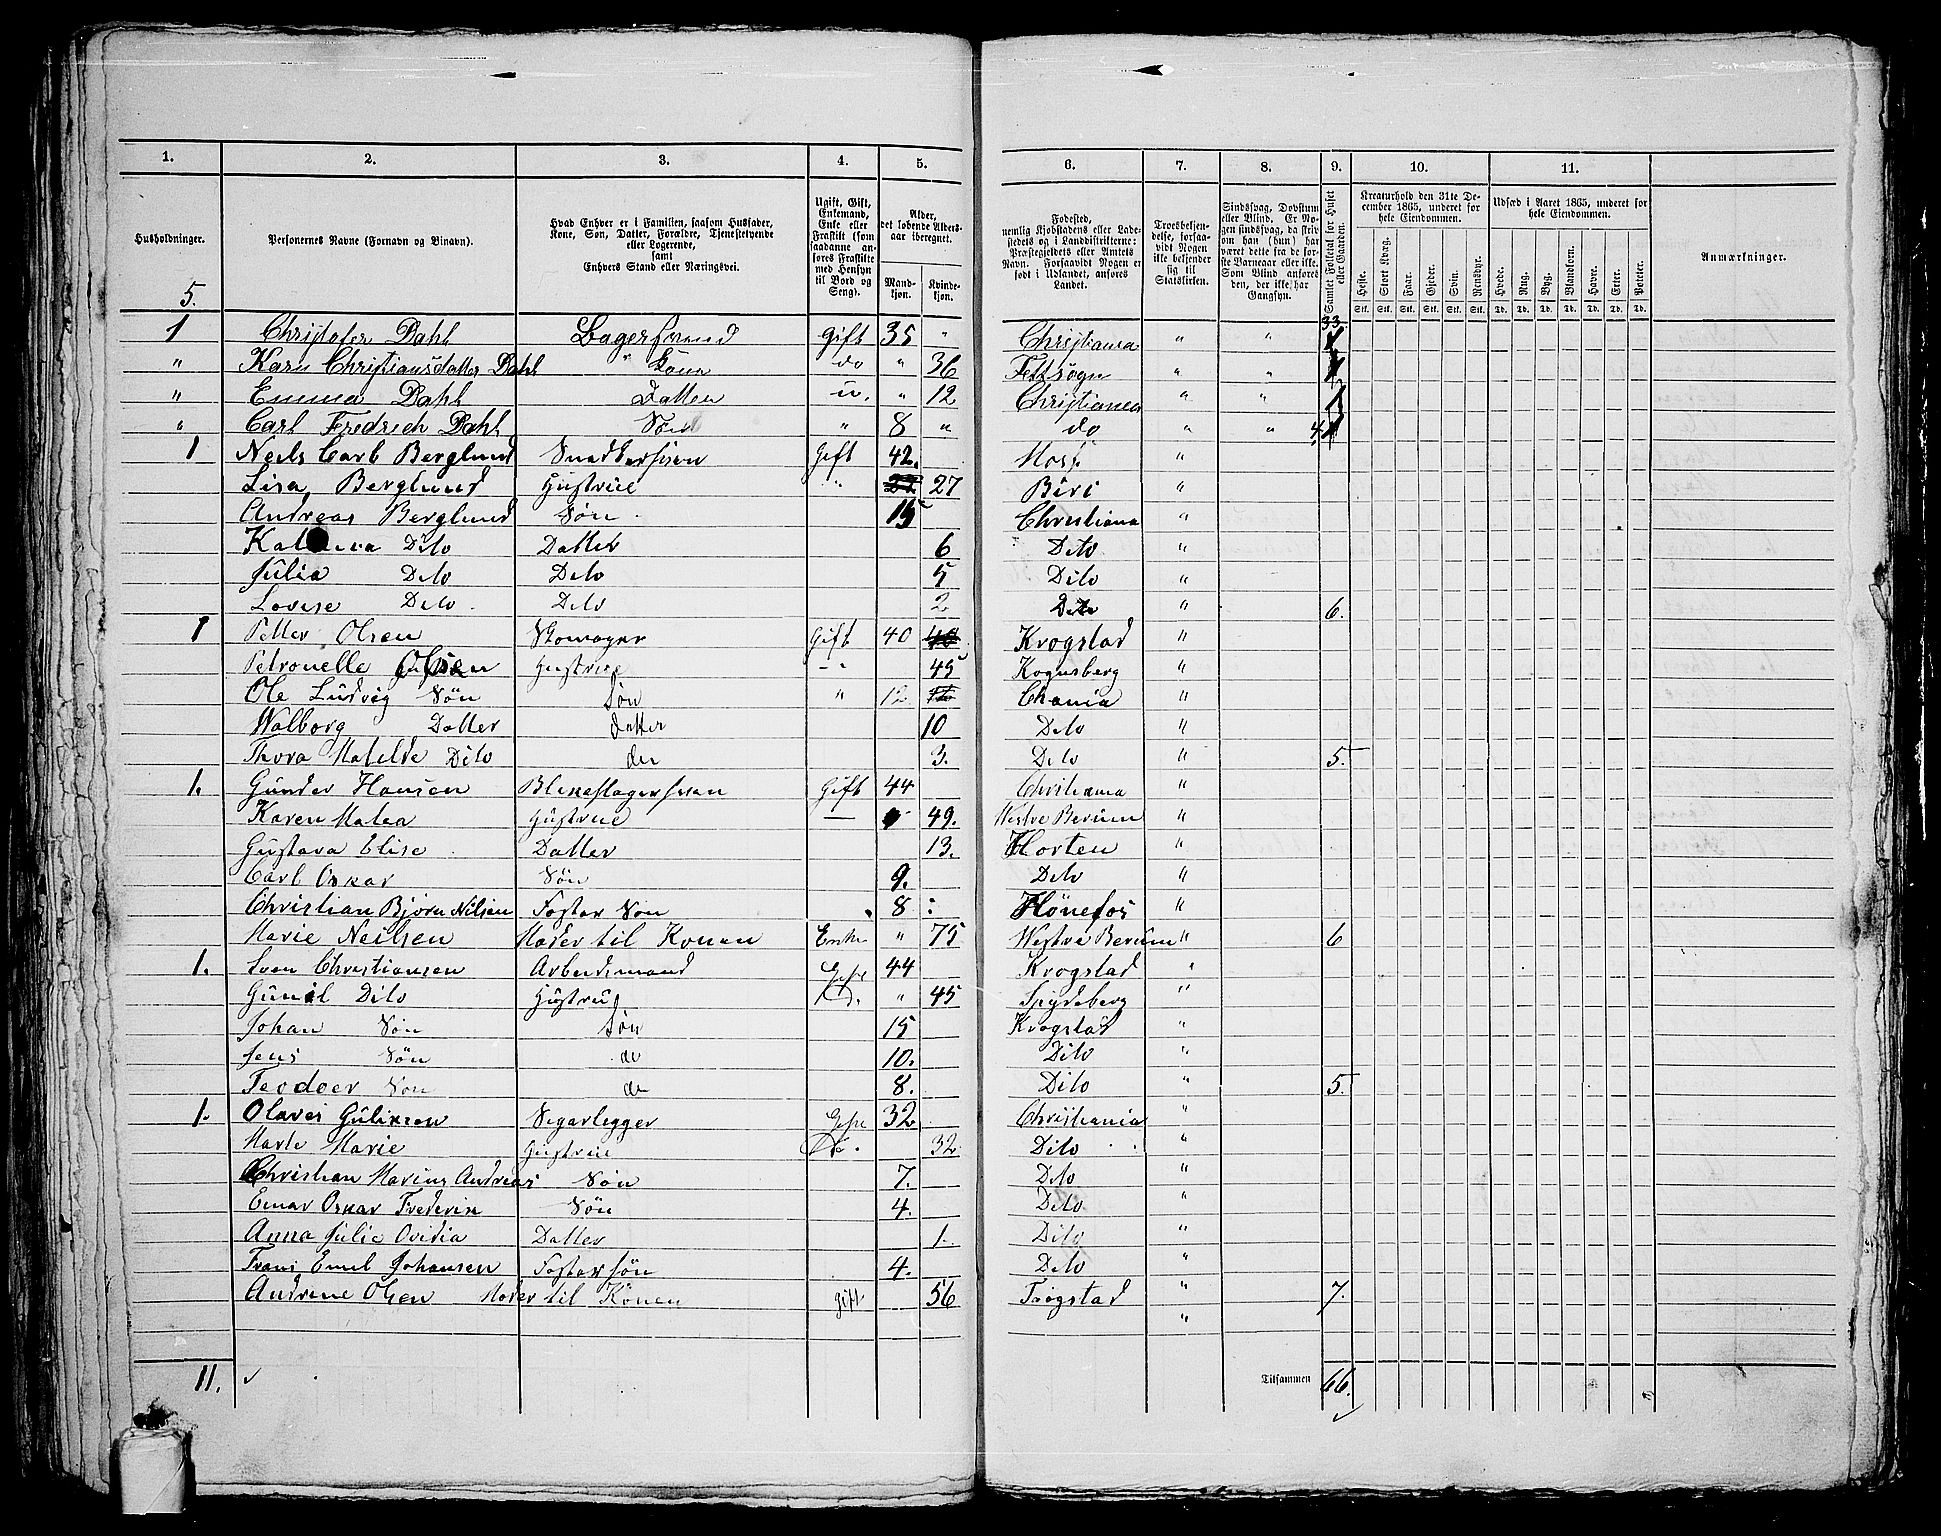 1. 2. 3. 4. 5. 6. 7. 8. 9. 10. 11.
Husholdninger.
Personernes Navne (Fornavn og Binavn).
Hvad Enhver er i Familien, saasom Husfader, Kone, Søn, Datter, Forældre, Tjenestetyende eller Logerende, samt Enhvers Stand eller Næringsvei.
Ugift, Gift, Enkemand, Enke eller Fraskilt (som saadanne anføres Fraskilte med Hensyn til Bord og Seng).
Alder, det løbende Alders-aar iberegnet.
Mand-kjøn. Kvinde-kjøn.
Fødested, nemlig Kjøbstadens eller Ladestedets og i Landdistrikterne: Præstegjeldets eller Amtets Navn. Forsaavidt Nogen er født i Udlandet, anføres Landet.
Troesbekjendelse, forsaavidt Nogen ikke bekjender sig til Statskirken.
Sindssvag, Døvstum eller Blind. Er Nogen sindssvag, da skriv om han (hun) har været dette fra de første Barneaar eller ikke. Som Blind anføres den, der ikke har Gangsyn.
Samlet Folketal for Huset eller Gaarden.
Kreaturhold den 31te December 1865, underet for hele Eiendommen.
Heste. Stort Kvæg. Faar. Gjeder. Svin. Rensdyr.
Stk. Stk. Stk. Stk. Stk. Stk.
Udsæd i Aaret 1865, underet for hele Eiendommen.
Hvede. Rug. Byg. Blandkorn. Havre. Erter. Poteter.
Td. Td. Td. Td. Td. Td. Td.
Anmærkninger.
5. 33
1 Christofer Dahl Lagersvend Gift 35 " Christiania " "
" Karn Christiansdatter Dahl " Gift do " 36 Fetsogn " "
" Emma Dahl Datter u. " 12 Christiania " "
" Carl Fredrich Dahl Søn " 8 " do " " 4
1 Neils Carl Berglund Snedkersven Gift 42. Moss "
Lisa Berglund Hustrue " 27 Biri "
Andreas Berglund Søn 15 Christiana "
Dito Datter 6 Dito "
Julia Dito Dito 5 Dito "
Lovise Dito Dito 2 Dito " 6.
1 Petter Olsen Skomager Gift 40 Krogstad "
Petronelle Olsen Hustrue " 45 Kognsberg "
Ole Ludvig Søn Søn " 12 Chania "
Walborg Datter datter 10 Dito "
Thora Matelde Dito do 3. Dito " 5.
1. Gunder Hansen Blekeslagersvan Gift 44 Christiania "
Karen Matea Hustrue — 49. Westre Berum "
Gustava Elise Datter 13. Horten "
Carl Oskar Søn 9. Dito "
Christian Bjørn Nilsen Foster Søn 8 Hönefos "
Marie Neilsen Moder til Konen Enke " 75 Westre Berum " 6
1. Sven Christiansen Arbeidsmand Gift 44 Krogstad "
Gunil Dito Hustrue Do. " 45 Spydeberg "
Johan Søn Søn 15 Krogstad "
Jens Søn do 10. Dito "
Teodoer Søn do 8. Dito " 5.
1. Olaves Gulixsen Segarlegger Gift 32 Christiania "
Marte Marie Hustrue Do. 32. Dito "
Christian Marius Andreas Søn 7. Dito "
Einar Oskar Frederik Søn 4. Dito "
Anna Julie Ovidia Datter 1. Dito "
Frans Emil Johansen Fostersøn 4. Dito "
Andrine Olsen Moder til Konen gift 56 Trøgstad " 7.
11. Tilsammen 66.